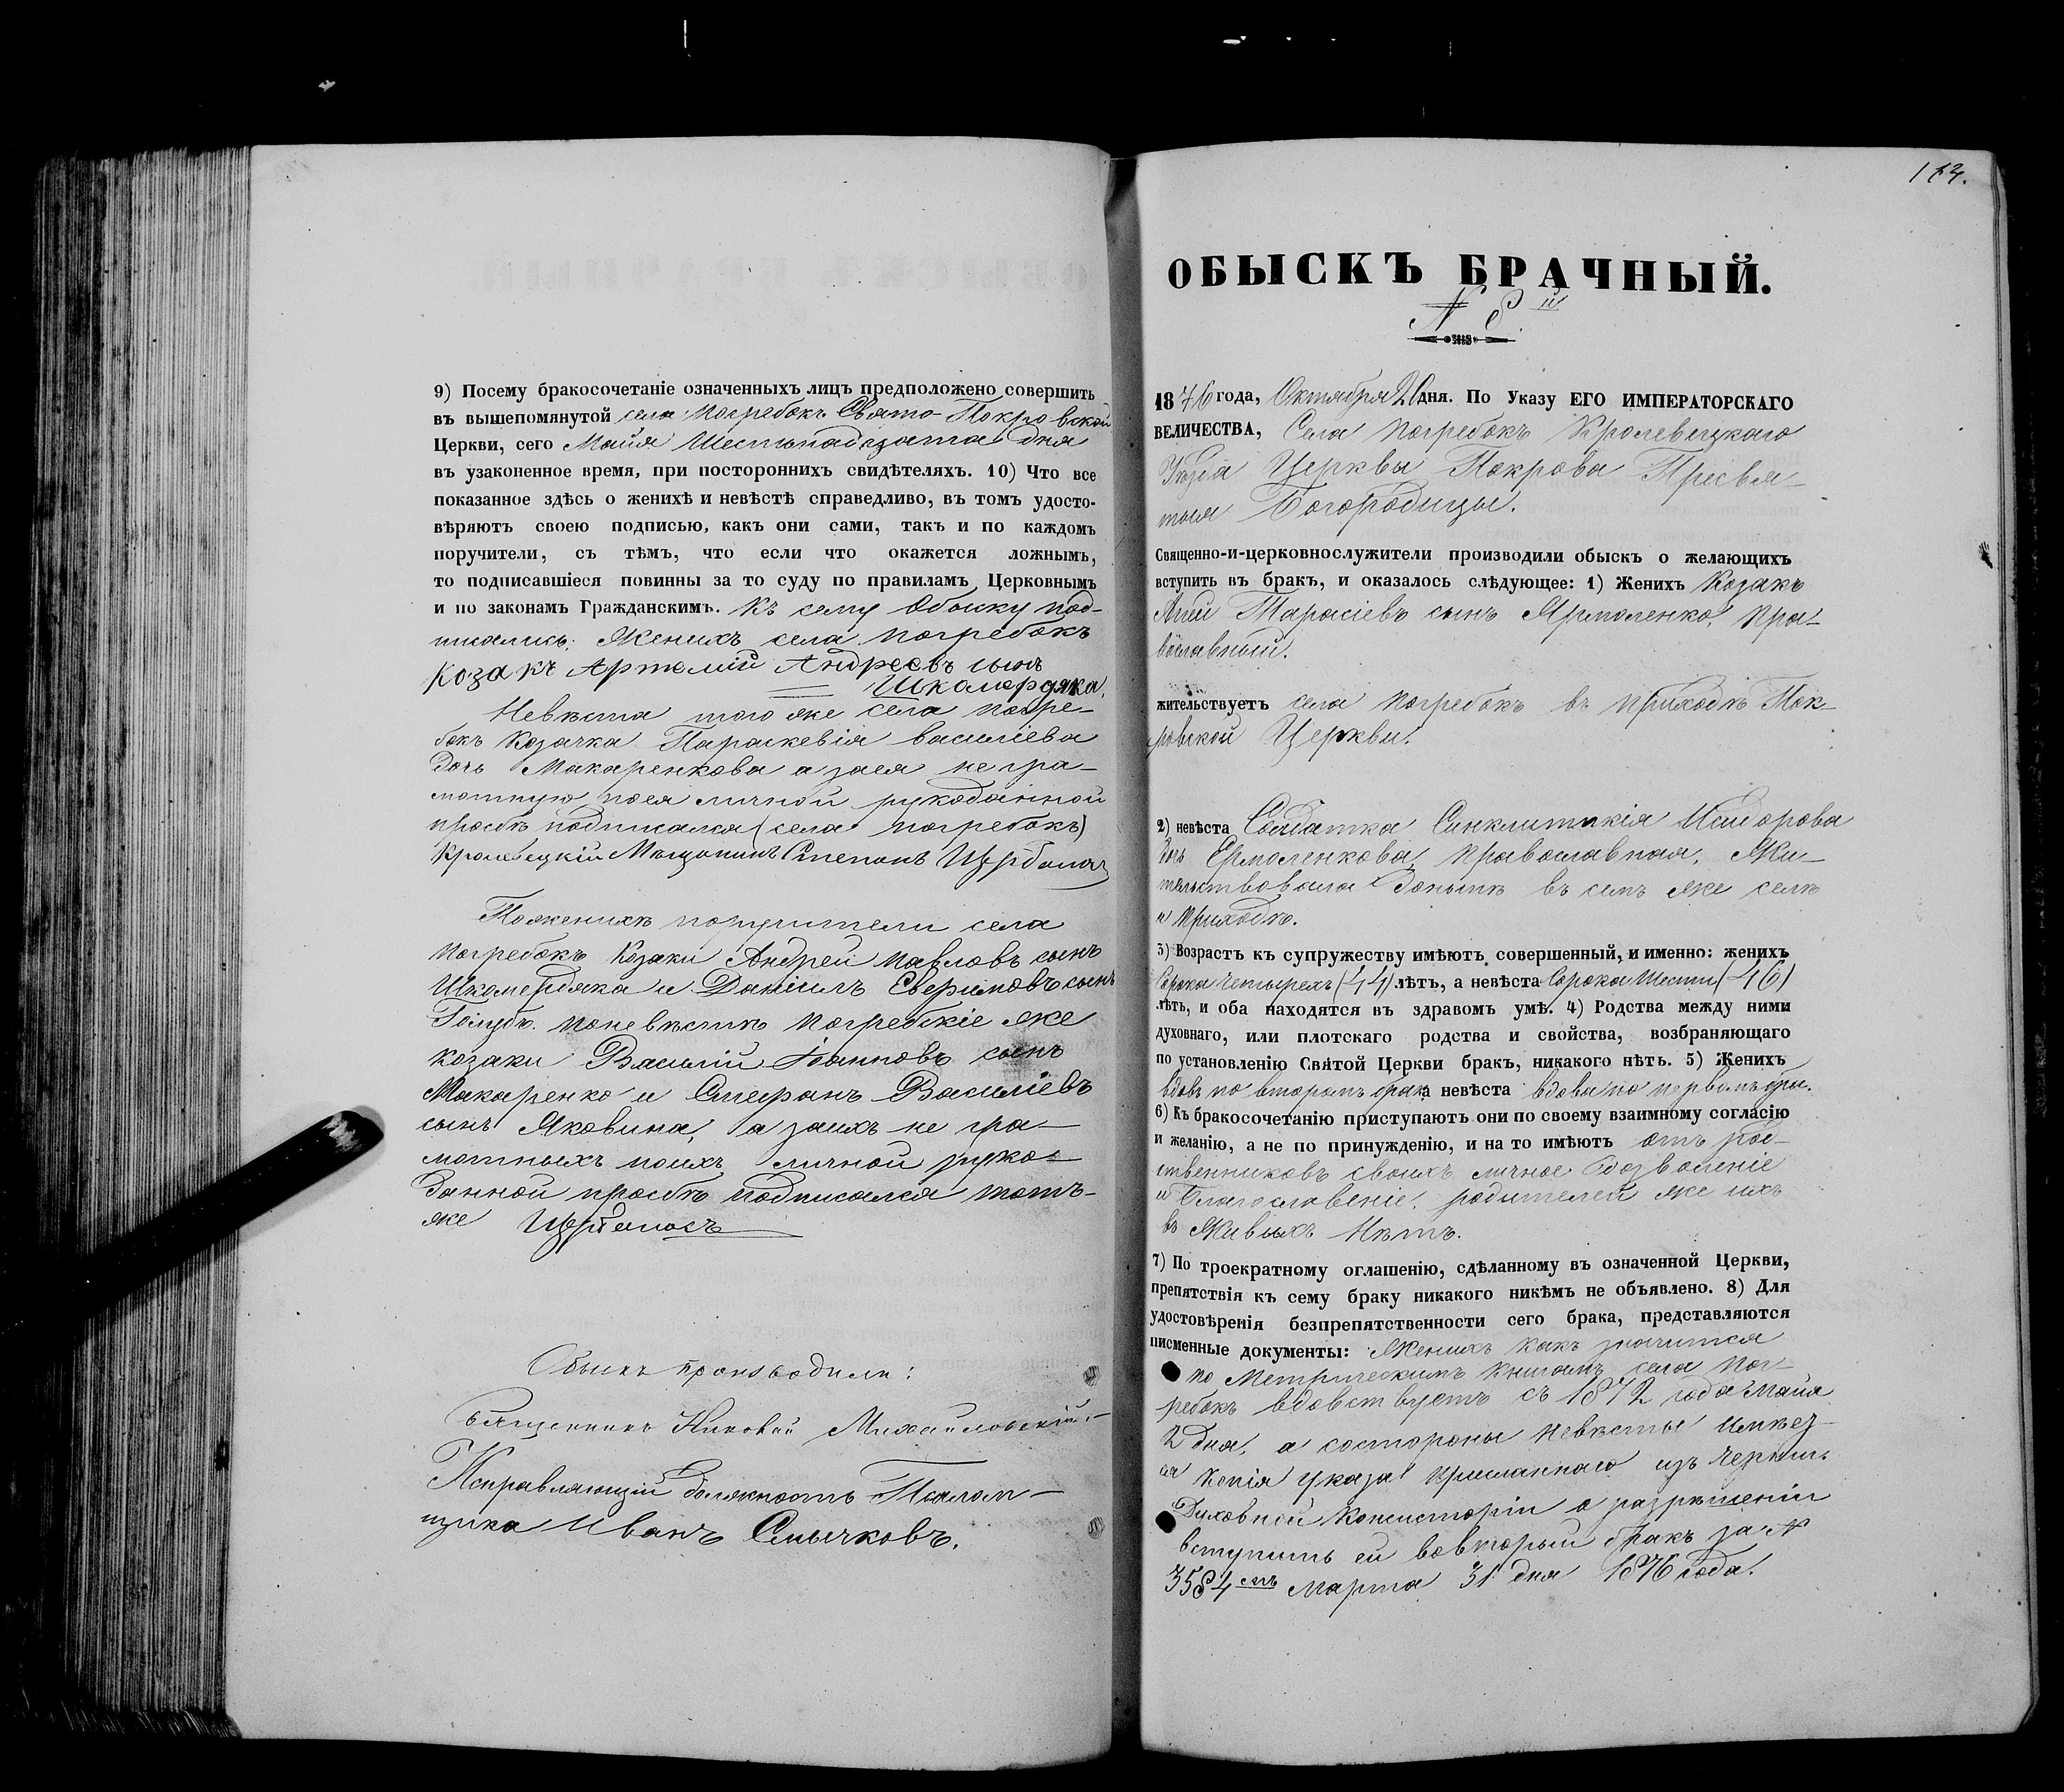 9) Посему бракосочетаніе означенныхъ лицъ предположено совершить
въ вышепомянутой села Погребокъ Свято-Покровской
Церкви, сего Майя Шестьнадцатаго дня
въ узаконенное время, при постороннихъ свидѣтеляхъ. 10) Что все
показанное здѣсь о женихѣ и невѣстѣ справедливо, въ томъ удосто-
вѣряютъ своею подписью, какъ они сами, такъ и по каждомъ
поручители, съ тѣмъ, что если что окажется ложнымъ,
то подписавшіеся повинны за то суду по правиламъ Церковнымъ
и по законамъ Гражданскимъ. Къ сему Обыску под-
писались: Женихъ села Погребокъ
Козакъ Артемій Андреевъ сынъ
Шкамардяка.
Невѣста того же села Погре-
бокъ Козачка Параскевія Василіева
дочь Макаренкова а заея негра-
мотную поея личной рукоданной
прозбѣ подписался (села Погребокъ)
Кролевецкій Мѣщанинъ Степанъ
Поженихѣ поручители села
Погребокъ Козаки Андрей Павловъ сынъ
Шкамердяка и Даніилъ Евфимовъ сынъ
Голубъ. Поневѣстѣ Погребскіе же
козаки Василій Іоанновъ сынъ
Макаренко и Стефанъ Василіевъ
сынъ Яковина, а заихъ не гра-
мотныхъ поихъ личной руко-
данной прозбѣ подписался тотъ-
же
Обыскъ производили:
Священникъ Михайловскій.
Исправляющій должность Псалом-
щика Иванъ Смычковъ.
ОБЫСКЪ БРАЧНЫЙ.
N 8й
1876 года, Октября 20 дня. По Указу ЕГО ИМПЕРАТОРСКАГО
ВЕЛИЧЕСТВА, Села Погребокъ Кролевецкаго
Уѣзда Церквы Покрова Пресвя-
тыя Богородицы.
Священно-и-церковнослужители производили обыскъ о желающихъ
вступить въ бракъ, и оказалось слѣдующее: 1) Женихъ Козакъ
Тарасіевъ сынъ Ярмоленко, Пра-
вославный.
жительствуетъ села Погребокъ въ приходѣ Пок-
ровской Церкви.
2) невѣста Солдатка Синклитикія
дочь Ермоленкова, Православная, Жи-
тельствовала донынѣ въ семъ же селѣ
и приходѣ.
3) Возрастъ къ супружеству имѣютъ совершенный, и именно: женихъ
Сорока четырехъ (44) лѣтъ, а невѣста Сорока Шести (46)
лѣтъ, и оба находятся въ здравомъ умѣ. 4) Родства между ними
духовнаго, или плотскаго родства и свойства, возбраняющаго
по установленію Святой Церкви бракъ, никакого нѣтъ. 5) Женихъ
вдовъ по второмъ бракѣ а невѣста вдова по первомъ бра.
6) Къ бракосочетанію приступаютъ они по своему взаимному согласію
и желанію, а не по принужденію, и на то имѣютъ отъ род-
ственниковъ своихъ личное дозволеніе
и Благословеніе. родителей же ихъ
въ Живыхъ Нѣтъ.
7) По троекратному оглашенію, сдѣланному въ означенной Церкви,
препятствія къ сему браку никакого никѣмъ не объявлено. 8) Для
удостовѣренія безпрепятственности сего брака, представляются
писменные документы: Женихъ какъ значится
по Метрическимъ книгамъ села Пог-
ребокъ вдовствуетъ съ 1872 года Майя
2 дня, а состороны Невѣсты Имѣет-
ся Копія указа присланнаго изъ Черниг.
Духовной Консисторіи о разрѣшеніи
вступить ей вовторый бракъ за N
3584 отъ Марта 31 дня 1876 года.